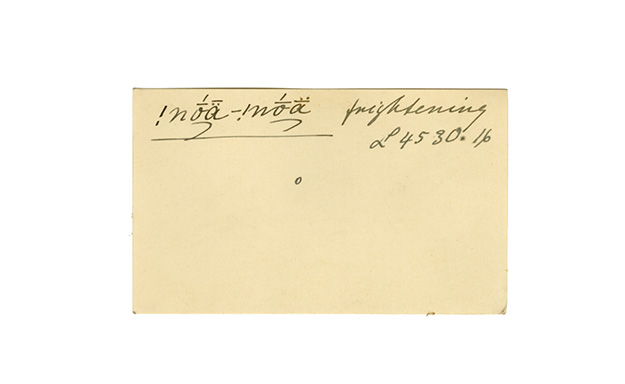 !nóä-!nóä frightening
L 4530. 16